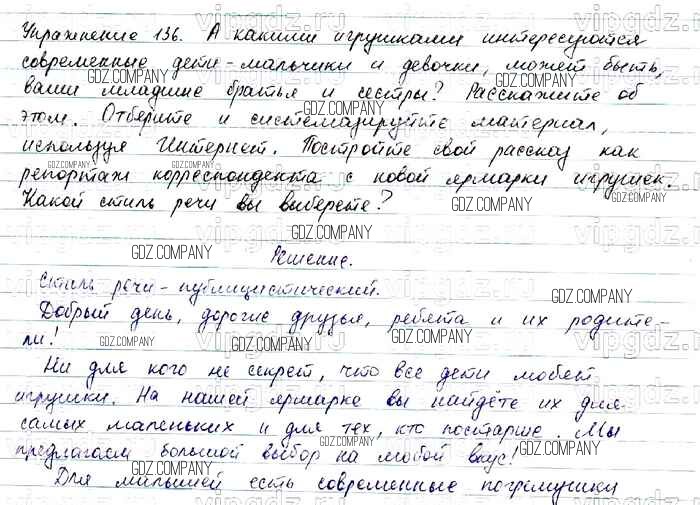 Упражнение 136. А какими игрушками интересуются
современные дети - мальчики и девочки, может быть,
ваши младшие братья и сестры? Расскажите об
этом. Отберите и систематизируйте материал,
используя Интернет. Постройте свой рассказ как
репортаж корреспондента с новой ярмарки игрушек.
Какой стиль речи вы выберете?
Решение.
Стиль речи - публицистический.
Добрый день, дорогие друзья, ребята и их родите-
ли!
Ни для кого не секрет, что все дети любят
игрушки. На нашей ярмарке вы найдёте их для
самых маленьких и для тех, кто постарше. Мы
предлагаем большой выбор на любой вкус!
Для малышей есть современные погремушки